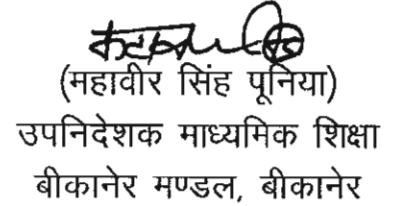 (महावीर सिंह पूनिया)
उपनिदेशक माध्यमिक शिक्षा
बीकानेर मण्डल, बीकानेर